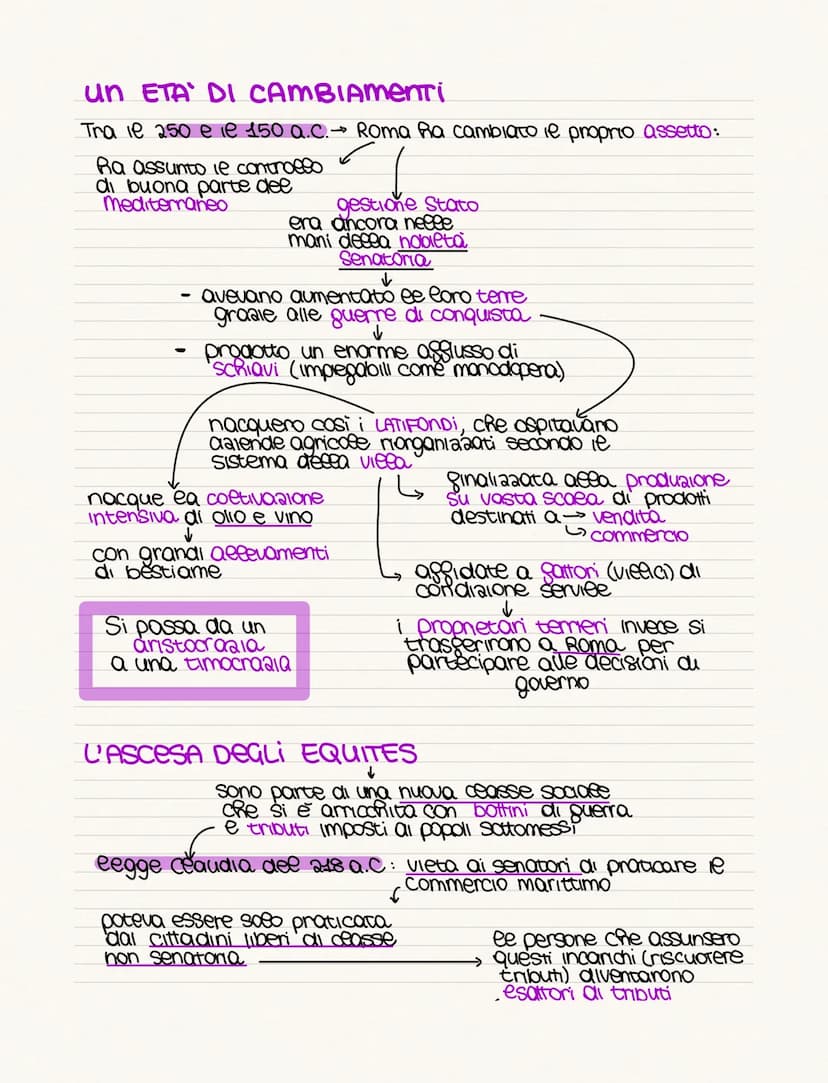 un ETA' DI CAMBIAMENTI
Tra il 250 e il 150 a.C. → Roma ha cambiato il proprio assetto:
ha assunto il controllo
di buona parte del
mediterraneo
gestione Stato
era ancora nelle
mani della nobiltà
senatoria
- avevano aumentato le loro terre
grazie alle guerre di conquista
- prodotto un enorme afflusso di
schiavi (impiegabili come manodopera)
nacquero così i LATIFONDI, che ospitavano
aziende agricole riorganizzati secondo il
sistema della villa
finalizzata alla produzione
su vasta scala di prodotti
destinati a → vendita
↳ commercio
nacque la coltivazione
intensiva di olio e vino
con grandi allevamenti
di bestiame
affidate a fattori (villici) di
condizione servile
i proprietari terrieri invece si
trasferirono a Roma per
partecipare alle decisioni di
governo
Si passa da un
aristocrazia
a una timocrazia
L'ASCESA DEGLI EQUITES
sono parte di una nuova classe sociale
che si è arricchita con bottini di guerra
e tributi imposti ai popoli sottomessi
legge Claudia del 218 a.C: vieta ai senatori di praticare il
commercio marittimo
poteva essere solo praticata
dai cittadini liberi di classe
non senatoria
le persone che assunsero
questi incarichi (riscuotere
tributi) diventarono
esattori di tributi